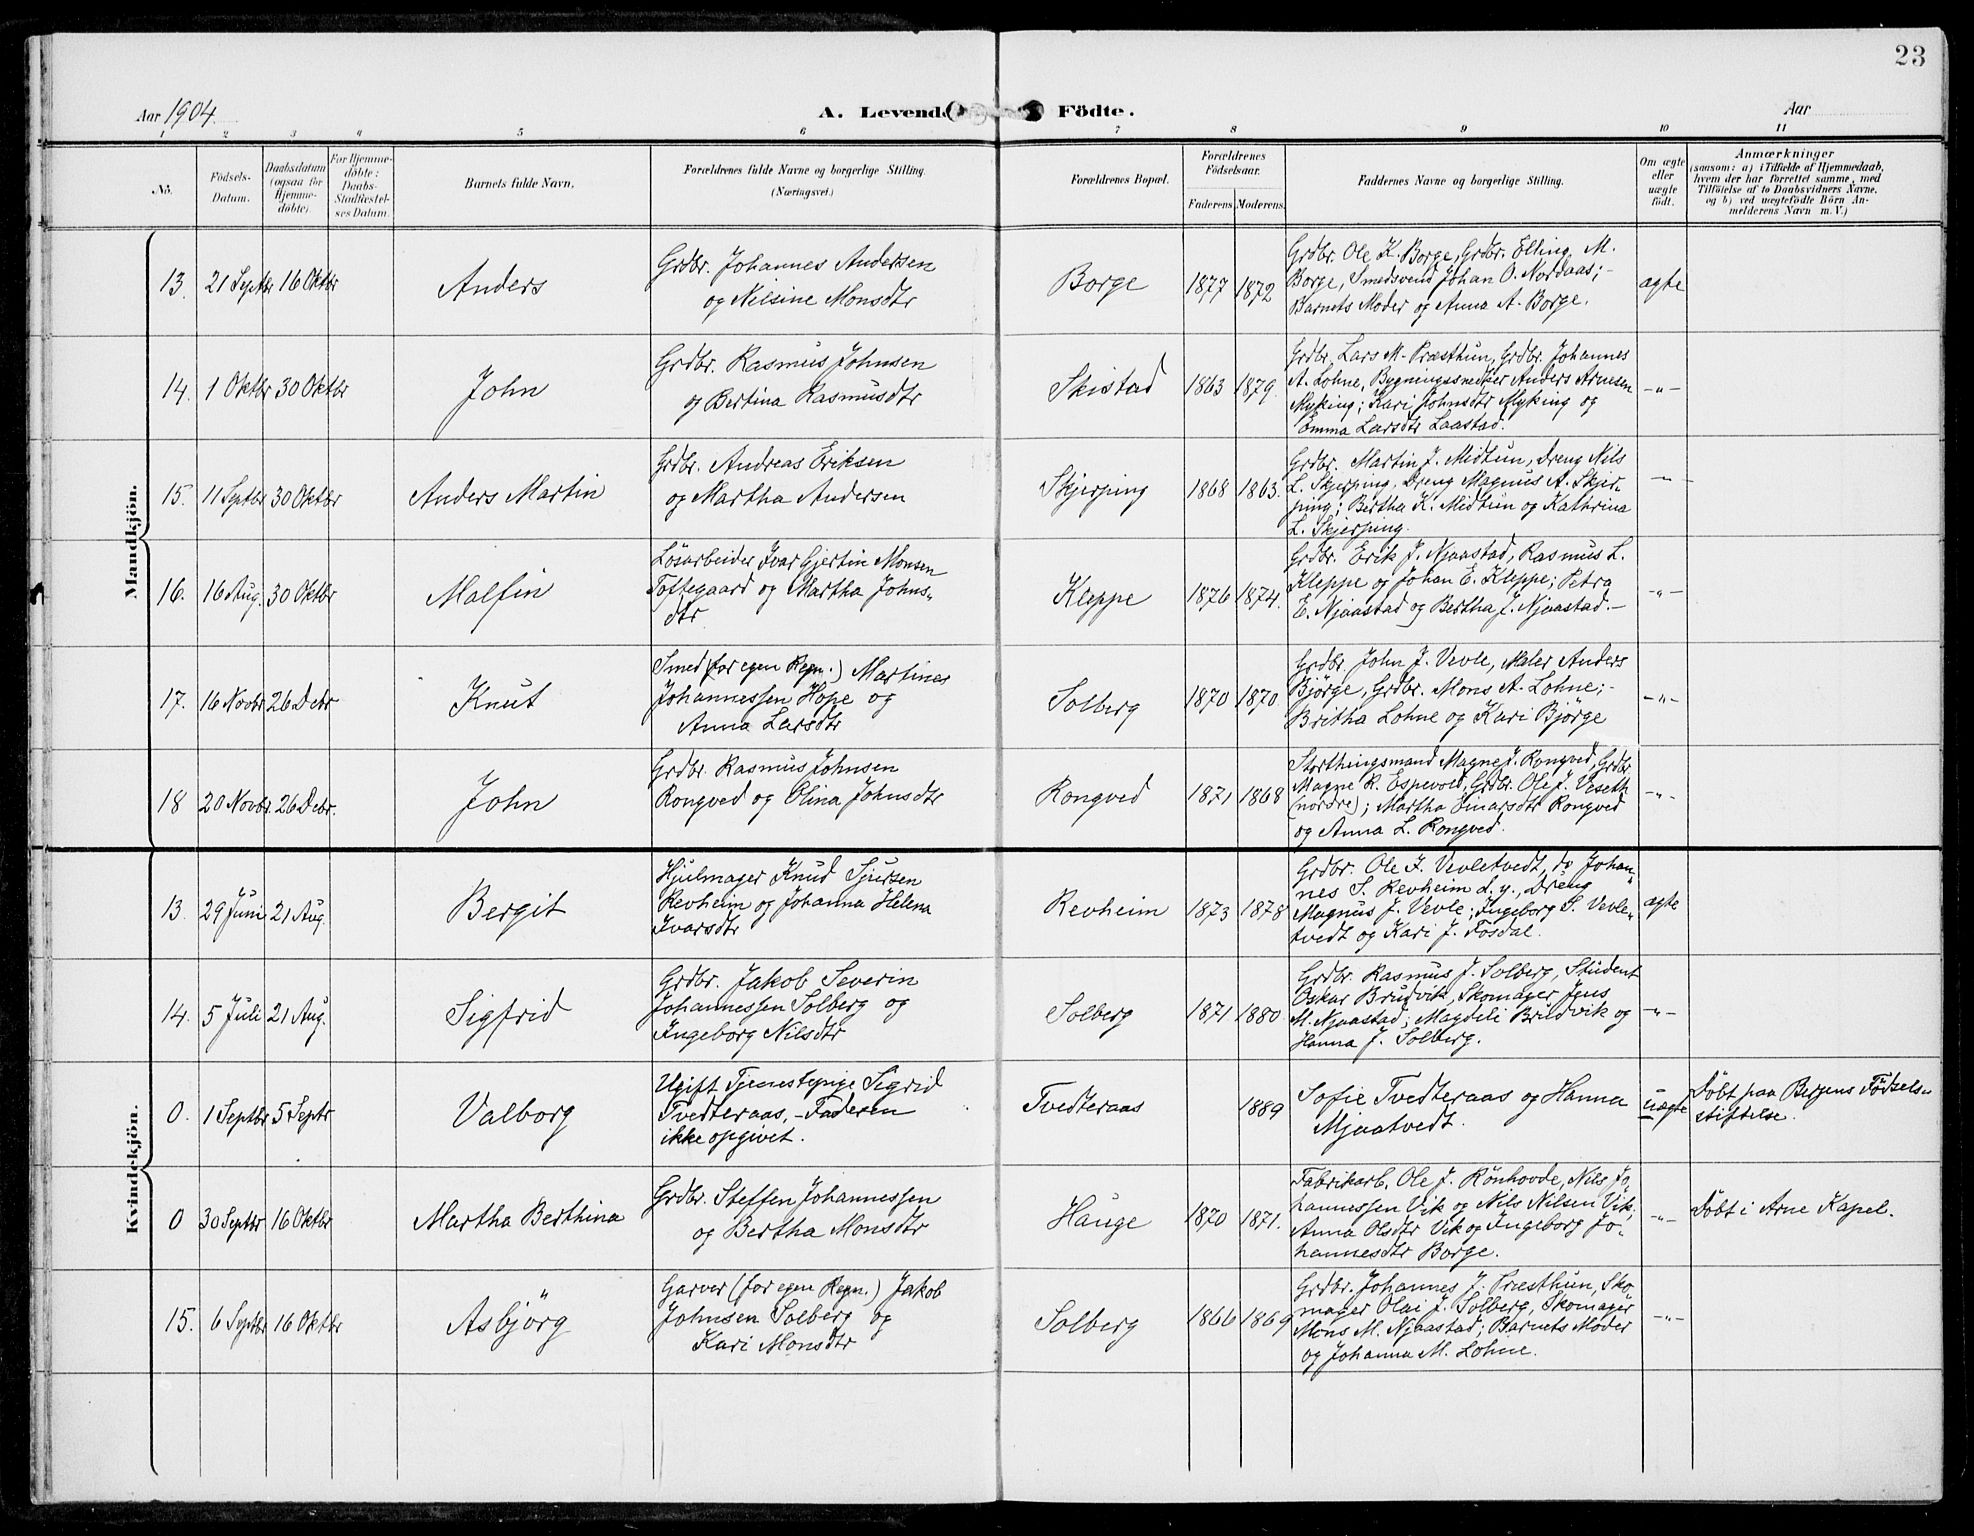 23
Aar 1904.
A. Levende Födte.
Aar
1 2 3 4 5 6 7 8 9 10 11
No.
Födsels-
Datum.
Daabsdatum
(ogsaa for
Hjemme-
döbte)
For Hjemme-
döbte:
Daabs-
Stadfæstel-
ses Datum.
Barnets fulde Navn.
Forældrenes fulde Navne og borgerlige Stilling.
(Næringsvei.)
Forældrenes Bopæl.
Forældrenes
Födselsaar.
Faderens. Moderens.
Faddernes Navne og borgerlige Stilling.
Om ægte
eller
uægte
födt.
Anmærkninger
(saasom: a) i Tilfælde af Hjemmedaab,
hvem der har forrettet samme, med
Tilföielse af to Daabsvidners Navne,
og b) ved uægtefödte Börn An-
melderens Navn m. V.)
Mandkjön.
13. 21 Septbr 16 Oktbr
Anders
Grdbr. Johannes Andersen
og Nilsine Monsdtr
Borge
1877 1872
Grdbr. Ole K. Borge, Grdbr. Elling M.
Borge, Smedsvend Johan O. Nordaas;-
Barnets Moder og Anna A. Borge.
ægte
14. 1 Oktbr 30 Oktbr
John
Grdbr. Rasmus Johnsen
og Bertina Rasmusdtr
Skistad
1863 1879.
Grdbr. Lars M. Præsthun, Grdbr. Johannes
A. Lohne, Bygningssnedker Anders Arnesen
Myking; Kari Johnsdtr Myking og
Emma Larsdtr Laastad.
-"-
15. 11 Septbr 30 Oktbr
Anders Martin
Grdbr. Andreas Eriksen
og Martha Andersen
Skjerping
1868 1863.
Grdbr. Martin J. Midtun, Dreng Nils
L. Skjerping, Dreng Magnus A. Skjer-
ping; Bertha K. Midtun og Kathrina
L. Skjerping.
-"-
16. 16 Aug. 30 Oktbr
Malfin
Lösarbeider Ivar Gjertin Monsen
Toftegaard og Martha Johns-
dtr
Kleppe
1876 1874.
Grdbr. Erik J. Njaastad, Rasmus L.
Kleppe og Johan E. Kleppe; Petra
E. Njaastad og Bertha J. Njaastad.-
-"-
17. 16 Novbr 26 Debr
Knut
Smed (for egen Regn.) Martines
Johannessen Hope og
Anna Larsdtr
Solberg
1870 1870
Grdbr. John J. Vevle, Maler Anders
Bjørge, Grdbr. Mons A. Lohne;-
Britha Lohne og Kari Bjørge
-"-
18 20 Novbr. 26 Debr.
John
Grdbr. Rasmus Johnsen
Rongved og Olina Johnsdtr
Rongved
1871 1868
Storthingsmand Magne J. Rongved, Grdbr.
Magne R. Espevold, Grdbr. Ole J. Veseth
(nordre); Martha Einarsdtr Rongved
og Anna L. Rongved.
-"-
Kvindekjön.
13. 29 Juni 21 Aug.
Bergit
Hjulmager Knud Sjursen
Revheim og Johanna Helena
Ivarsdtr
Revheim
1873 1878
Grdbr. Ole J. Vevletvedt, do Johan-
nes S. Revheim d.y., Dreng
Magnus J. Vevle; Ingeborg S. Vevle-
tvedt og Kari J. Fosdal.
ægte
14. 5 Juli 21 Aug.
Sigfrid
Grdbr. Jakob Severin
Johannessen Solberg og
Ingeborg Nilsdtr
Solberg
1871 1880
Grdbr. Rasmus J. Solberg, Student
Oskar Brudvik, Skomager Jens
M. Njaastad; Magdeli Brudvik og
Hanna J. Solberg.
-"-
0. 1 Septbr 5 Septr
Valborg
Ugift Tjenestepige Sigrid
Tvedteraas, - Faderen
ikke opgivet.
Tvedteraas
1889
Sofie Tvedteraas og Hanna
Mjaatvedt.
uægte
Döbt paa Bergens Födsels-
stiftelse.
0 30 Septbr 16 Oktbr
Martha Berthina
Grdbr. Steffen Johannessen
og Bertha Monsdtr
Hauge
1870 1871.
Fabrikarb. Ole J. Rönhovde, Nils Jo-
hannessen Vik og Nils Nilsen Vik;
Anna Olsdtr Vik og Ingeborg Jo-
hannesdtr Borge.
-"-
Döbt i Arne Kapel.
15. 6 Septbr 16 Oktbr
Asbjörg
Garver (for egen Regn.) Jakob
Johnsen Solberg og
Kari Monsdtr
Solberg
1866 1869
Grdbr. Johannes J. Præsthun, Sko-
mager Olai J. Solberg, Skomager
Mons M. Njaastad; Barnets Moder
og Johanna M. Lohne.
-"-